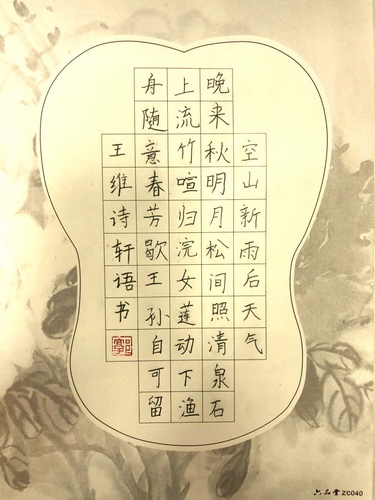 空山新雨后天气
晚来秋明月松间照清泉石
上流竹喧归浣女莲动下渔
舟随意春芳歇王孙自可留
王维诗轩语书
六品堂 ZC040